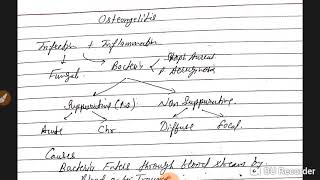 Osteomyelitis
Infection + Inflammation
Fungal Bacteria Staph Aureus
P. Aeruginosa
Suppurative Non Suppurative
Acute Chr Diffuse Focal
Causes
Bacteria Enters through blood stream by
DU Recorder